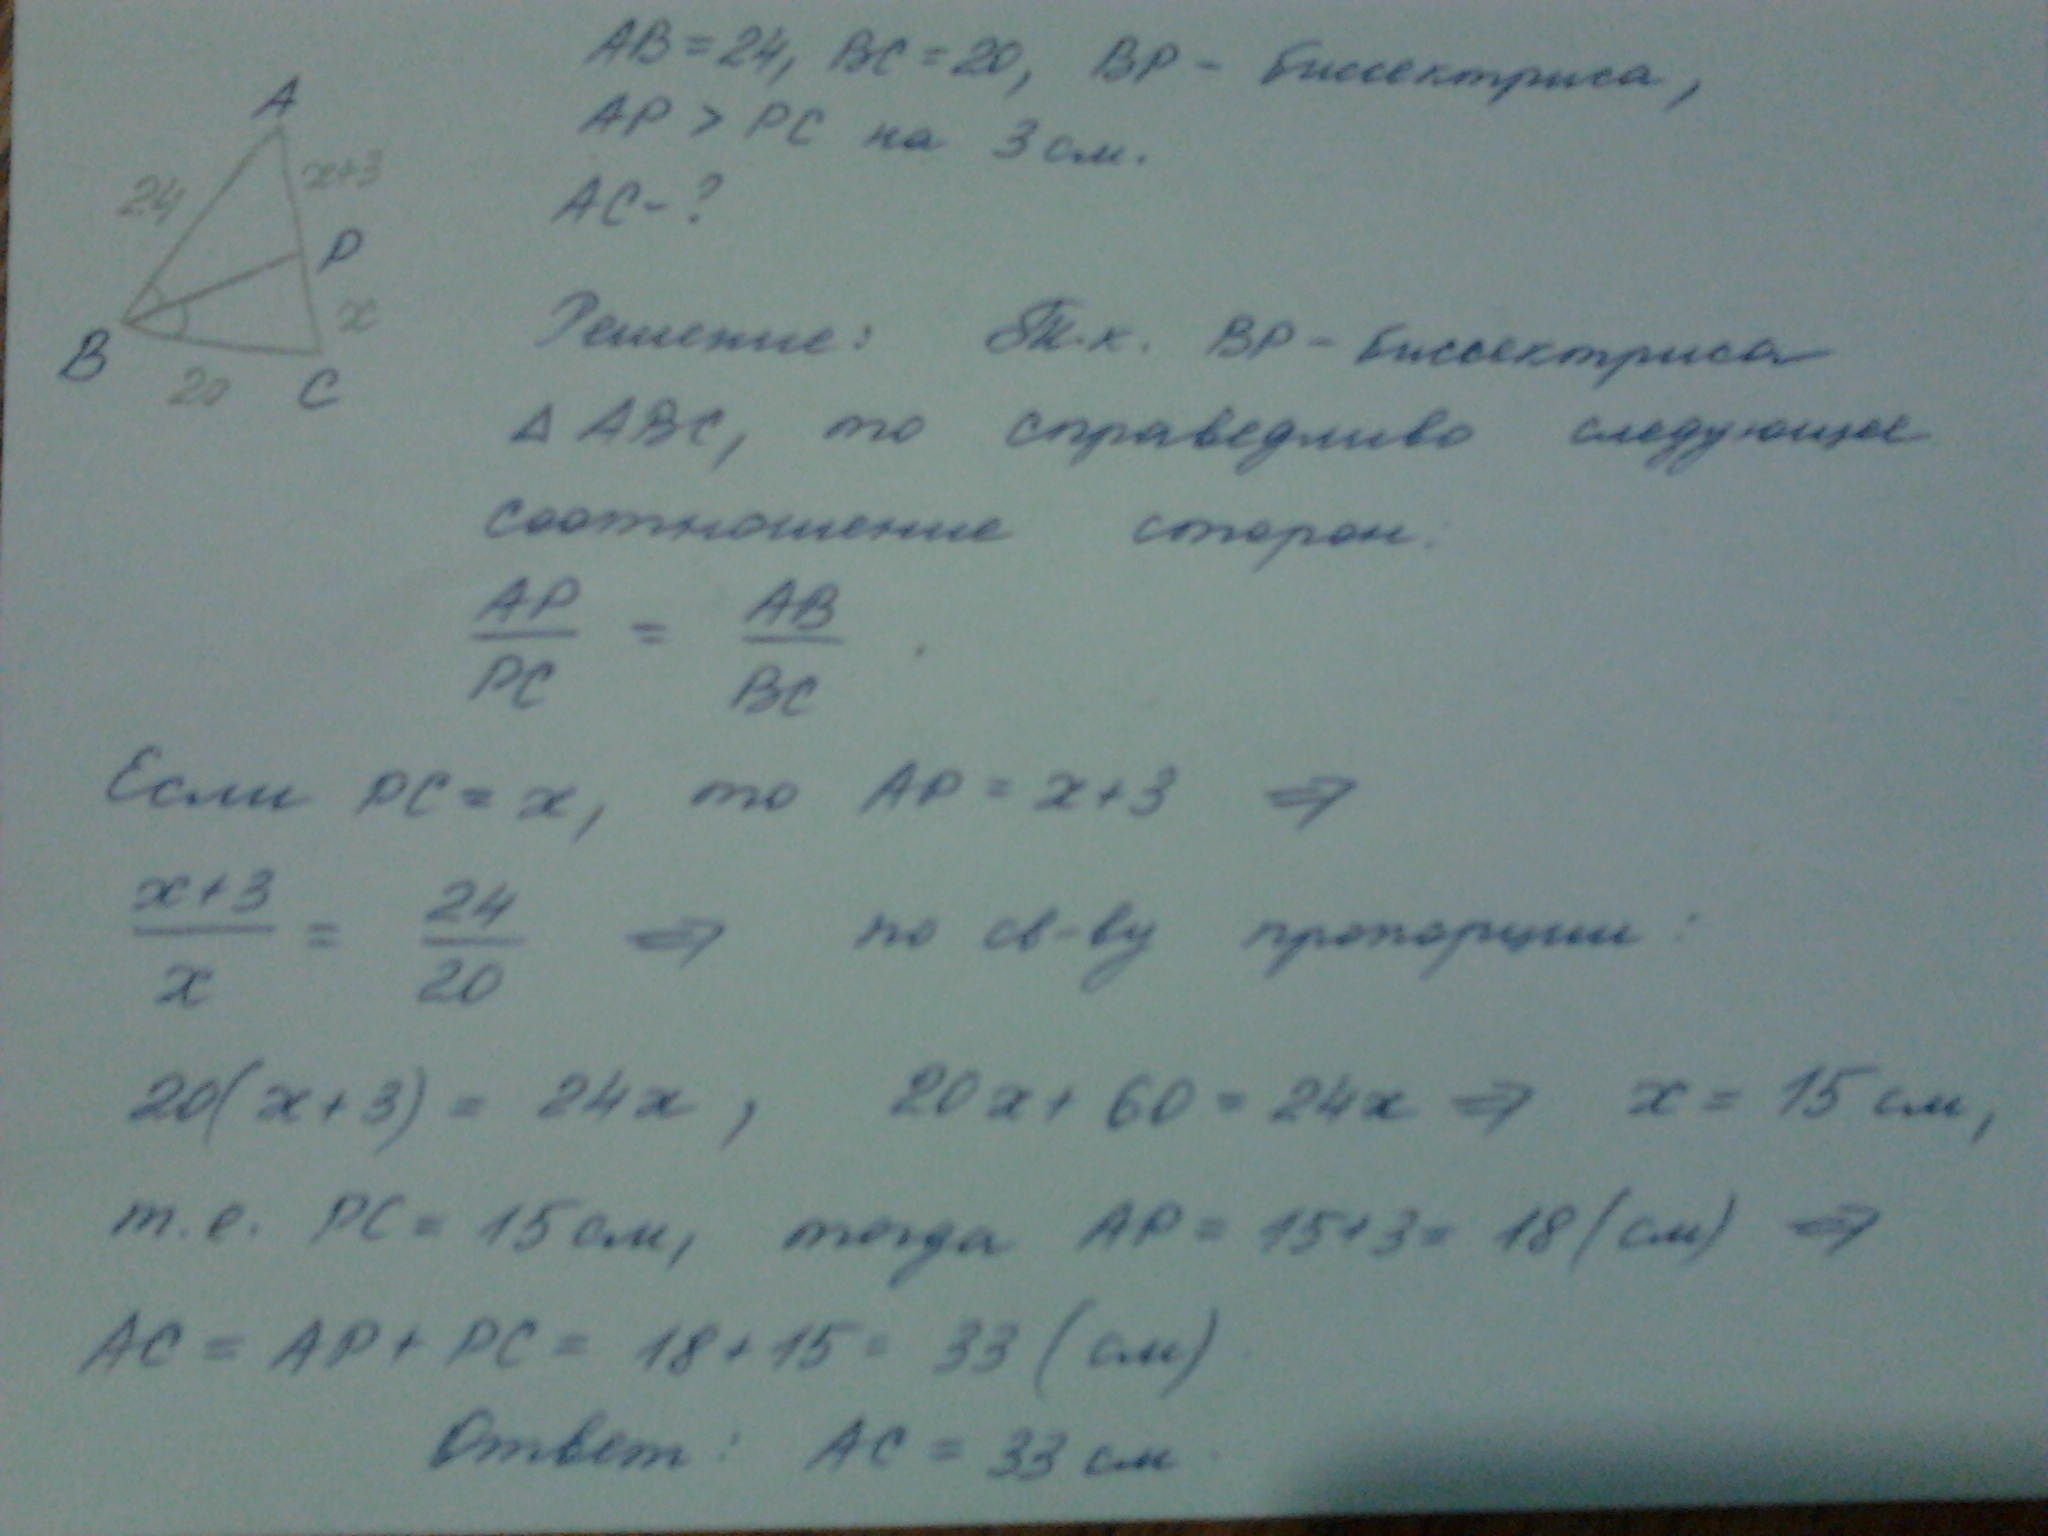 AB = 24, BC = 20, BP - биссектриса,
AP > PC на 3 см.
AC - ?
A
24
x+3
P
B
x
20
C
Решение: Т.к. BP - биссектриса
Δ ABC, то справедливо следующее
соотношение сторон:
AP/PC = AB/BC.
Если PC = x, то AP = x+3 ⇒
x+3/x = 24/20 ⇒ по св-ву пропорции:
20(x+3) = 24x, 20x + 60 = 24x ⇒ x = 15 см,
т.е. PC = 15 см, тогда AP = 15+3 = 18 (см) ⇒
AC = AP + PC = 18 + 15 = 33 (см)
Ответ: AC = 33 см